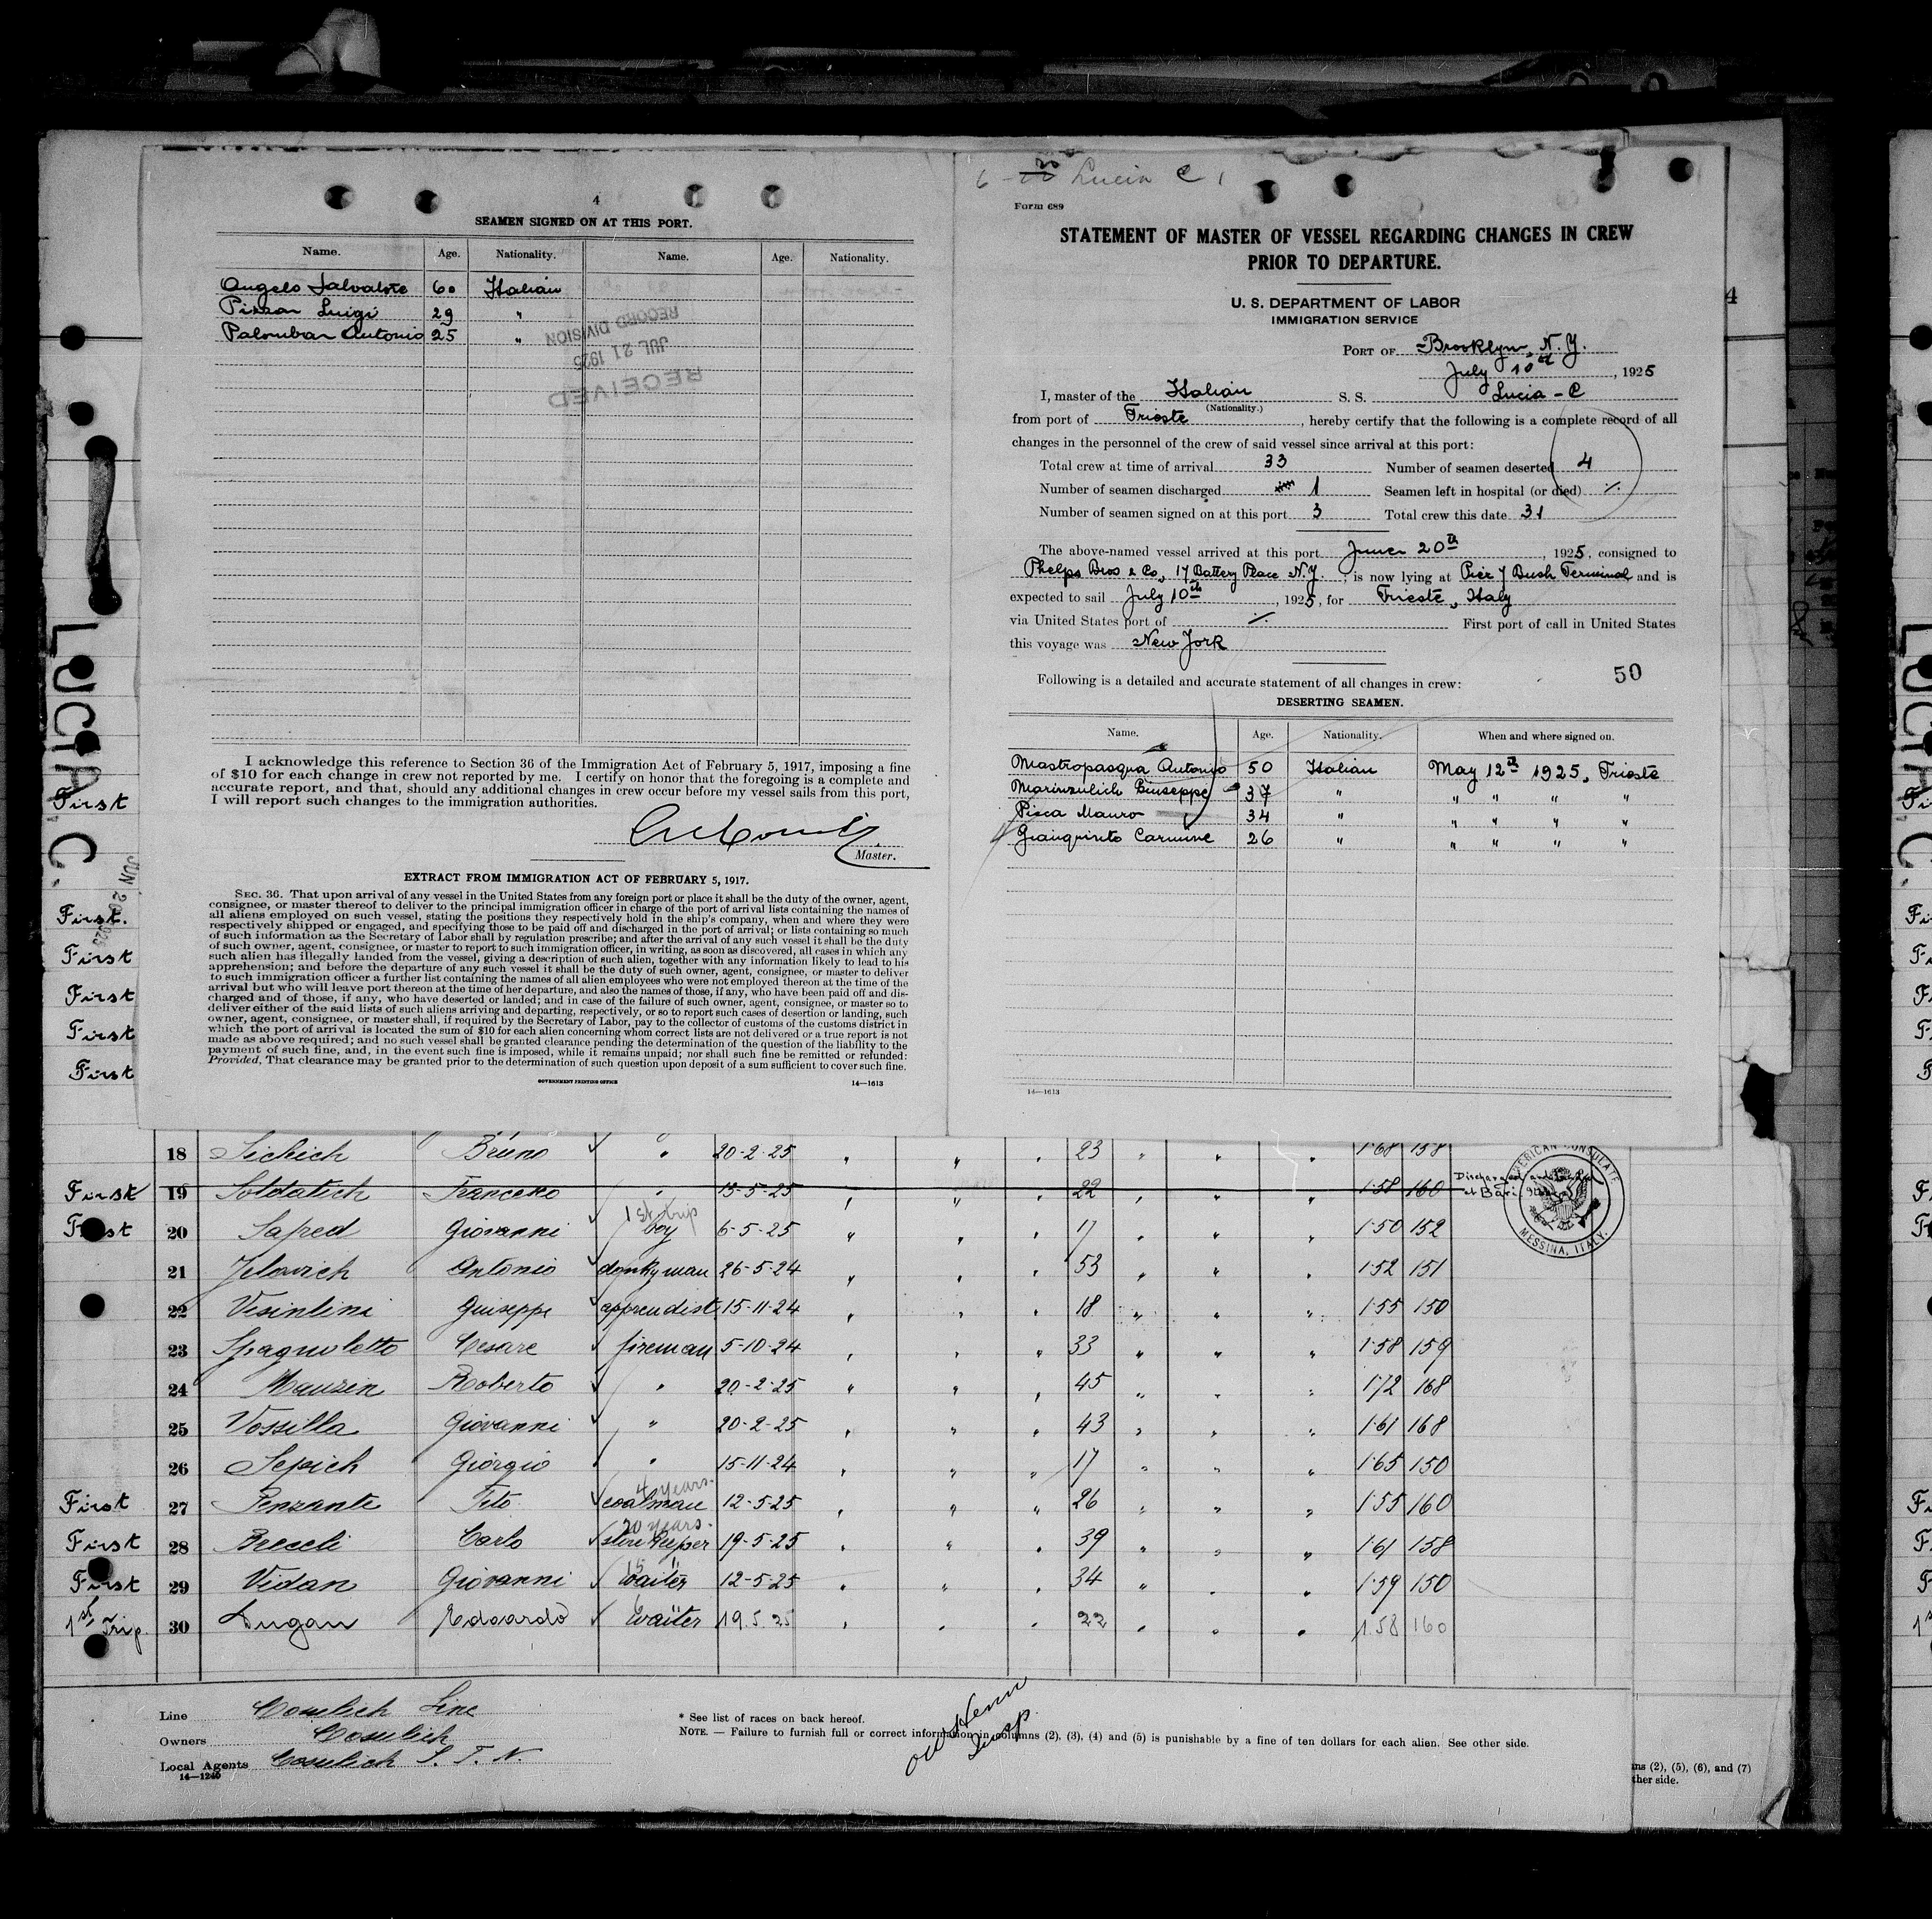 4
SEAMEN SIGNED ON AT THIS PORT.
Name. Age. Nationality. Name. Age. Nationality.
Angelo Salvatore 60 Italian
Luigi 29 "
Palomban Antonio 25 "
RECEIVED
JUL 21 1925
RECORD DIVISION
I acknowledge this reference to Section 36 of the Immigration Act of February 5, 1917, imposing a fine
of $10 for each change in crew not reported by me. I certify on honor that the foregoing is a complete and
accurate report, and that, should any additional changes in crew occur before my vessel sails from this port,
I will report such changes to the immigration authorities.
Master.
EXTRACT FROM IMMIGRATION ACT OF FEBRUARY 5, 1917.
SEC. 36. That upon arrival of any vessel in the United States from any foreign port or place it shall be the duty of the owner, agent,
consignee, or master thereof to deliver to the principal immigration officer in charge of the port of arrival lists containing the names of
all aliens employed on such vessel, stating the positions they respectively hold in the ship's company, when and where they were
respectively shipped or engaged, and specifying those to be paid off and discharged in the port of arrival; or lists containing so much
of such information as the Secretary of Labor shall by regulation prescribe; and after the arrival of any such vessel it shall be the duty
of such owner, agent, consignee, or master to report to such immigration officer, in writing, as soon as discovered, all cases in which any
such alien has illegally landed from the vessel, giving a description of such alien, together with any information likely to lead to his
apprehension; and before the departure of any such vessel it shall be the duty of such owner, agent, consignee, or master to deliver
to such immigration officer a further list containing the names of all alien employees who were not employed thereon at the time of the
arrival but who will leave port thereon at the time of her departure, and also the names of those, if any, who have been paid off and dis-
charged and of those, if any, who have deserted or landed; and in case of the failure of such owner, agent, consignee, or master so to
deliver either of the said lists of such aliens arriving and departing, respectively, or so to report such cases of desertion or landing, such
owner, agent, consignee, or master shall, if required by the Secretary of Labor, pay to the collector of customs of the customs district in
which the port of arrival is located the sum of $10 for each alien concerning whom correct lists are not delivered or a true report is not
made as above required; and no such vessel shall be granted clearance pending the determination of the question of the liability to the
payment of such fine, and, in the event such fine is imposed, while it remains unpaid; nor shall such fine be remitted or refunded:
Provided, That clearance may be granted prior to the determination of such question upon deposit of a sum sufficient to cover such fine.
GOVERNMENT PRINTING OFFICE 14—1613
Lucia C
Form 689
STATEMENT OF MASTER OF VESSEL REGARDING CHANGES IN CREW
PRIOR TO DEPARTURE.
U. S. DEPARTMENT OF LABOR
IMMIGRATION SERVICE
PORT OF Brooklyn, N. Y.
July 10th, 1925
I, master of the Italian S. S. Lucia - C
(Nationality.)
from port of Trieste, hereby certify that the following is a complete record of all
changes in the personnel of the crew of said vessel since arrival at this port:
Total crew at time of arrival 33 Number of seamen deserted 4
Number of seamen discharged 1 Seamen left in hospital (or died) ./.
Number of seamen signed on at this port 3 Total crew this date 31
The above-named vessel arrived at this port June 20th, 1925, consigned to
Phelps Bros & Co., 17 Battery Place N.Y., is now lying at Pier 7 Bush Terminal and is
expected to sail July 10th, 1925, for Trieste, Italy
via United States port of ./. First port of call in United States
this voyage was New York
50
Following is a detailed and accurate statement of all changes in crew:
DESERTING SEAMEN.
Name. Age. Nationality. When and where signed on.
Mastropasqua Antonio 50 Italian May 12th 1925, Trieste
Marinzulich Giuseppe 37 " " " " "
Pisca Mauro 34 " " " " "
Gianquinto Carmine 26 " " " " "
14—1613
LUCIA C.
JUN 20 1925
First
First.
First
First
First
First
18 Sichich Bruno " 20-2-25 " " " 23 " " " 1·68 158
First 19 Soldatich Francesco " 15-5-25 " " " 22 " " " 1·58 160
at Bari
AMERICAN CONSULATE
MESSINA, ITALY.
1st trip
First 20 Saped Giovanni boy 6-5-25 " " " 17 " " " 1·50 152
21 Jelovich Antonio donkyman 26-5-24 " " " 53 " " " 1·52 151
22 Visintini Giuseppe apprendist 15-11-24 " " " 18 " " " 1·55 150
23 Spagnoletto Cesare fireman 5-10-24 " " " 33 " " " 1·58 159
24 Mauzin Roberto " 20-2-25 " " " 45 " " " 1·72 168
25 Vossilla Giovanni " 20-2-25 " " " 43 " " " 1·61 168
26 Sepich Giorgio " 15-11-24 " " " 17 " " " 1·65 150
4 years.
First 27 Penzante Tito coalman 12-5-25 " " " 26 " " " 1·55 160
20 years.
First 28 Breceli Carlo storekeeper 19-5-25 " " " 39 " " " 1·61 158
15 "
First 29 Vidan Giovanni waiter 12-5-25 " " " 34 " " " 1·59 150
1st Trip. 30 Dugan Edoardo waiter 19.5.25 " " " 22 " " " 1.58 160
Line Cosulich Line
Owners Cosulich
Local Agents Cosulich S. T. N.
14—1240
* See list of races on back hereof.
NOTE. — Failure to furnish full or correct information in columns (2), (3), (4) and (5) is punishable by a fine of ten dollars for each alien. See other side.
Insp.
ns (2), (5), (6), and (7)
ther side.